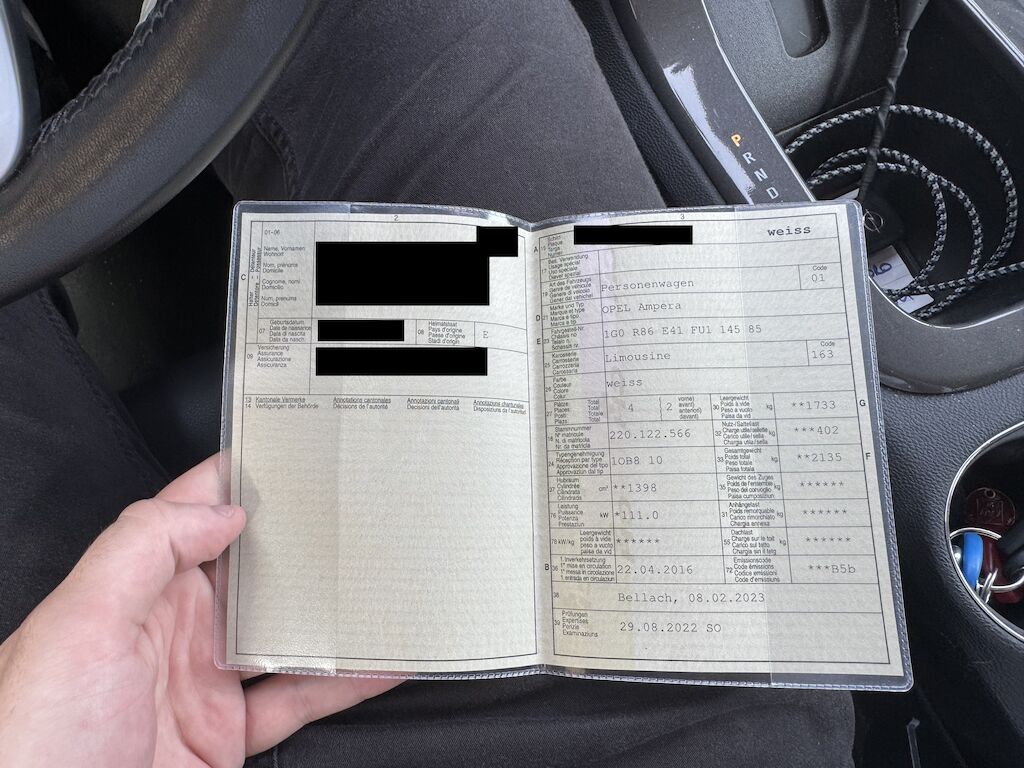 2
01-06
C
Halter Détenteur
Detentore Possessur
Name, Vornamen
Wohnort
Nom, prénoms
Domicile
Cognome, nomi
Domicilio
Num, prenums
Domicil
07
Geburtsdatum
Date de naissance
Data di nascita
Data da nasch.
08
Heimatstaat
Pays d'origine
Paese d'origine
Stadi d'origin
E
09
Versicherung
Assurance
Assicurazione
Assicuranza
13 Kantonale Vermerke
14 Verfügungen der Behörde
Annotations cantonales
Décisions de l'autorité
Annotazioni cantonali
Decisioni dell'autorità
Annotaziuns chantunalas
Disposiziuns da l'autoritad
3
A
15
Schild
Plaque
Targa
Numer
weiss
17
Bes. Verwendung
Usage spécial
Uso speciale
Diever spezial
19
Art des Fahrzeugs
Genre de véhicule
Genere di veicolo
Gener dal vehichel
Personenwagen
Code
01
D
21
Marke und Typ
Marque et type
Marca e tipo
Marca e tip
OPEL Ampera
E
23
Fahrgestell-Nr.
Châssis no.
Telaio n.
Schassis nr.
1G0 R86 E41 FU1 145 85
25
Karosserie
Carrosserie
Carrozzeria
Carossaria
Limousine
Code
163
26
Farbe
Couleur
Colore
Colur
weiss
27
Plätze: Total
Places: Total
Posti: Totale
Plazs: Total
4
2
vorne)
avant)
anteriori)
davant)
30
Leergewicht
Poids à vide
Peso a vuoto
Paisa da vid
kg
**1733
G
18
Stammnummer
N° matricule
N. di matricola
Nr. da matricla
220.122.566
32
Nutz-/Sattellast
Charge utile/sellette
Carico utile/sella
Chargia utila/sella
kg
***402
24
Typengenehmigung
Réception par type
Approvazione del tipo
Approvaziun dal tip
1OB8 10
33
Gesamtgewicht
Poids total
Peso totale
Paisa totala
kg
**2135
F
37
Hubraum
Cylindrée
Cilindrata
Cilindrada
cm³
**1398
35
Gewicht des Zuges
Poids de l'ensemble
Peso del convoglio
Paisa cumposiziun
kg
******
76
Leistung
Puissance
Potenza
Prestaziun
kW
*111.0
31
Anhängelast
Poids remorquable
Carico rimorchiato
Chargia annexa
kg
******
78 kW/kg
Leergewicht
poids à vide
peso a vuoto
paisa da vid
******
55
Dachlast
Charge sur le toit
Carico sul tetto
Chargia sin il tetg
kg
******
B
36
1. Inverkehrsetzung
1re mise en circulation
1a messa in circolazione
1. entrada en circulaziun
22.04.2016
72
Emissionscode
Code émissions
Codice emissioni
Code d'emissiuns
***B5b
38
Bellach, 08.02.2023
39
Prüfungen
Expertises
Perizie
Examinaziuns
29.08.2022 SO
P
R
N
D